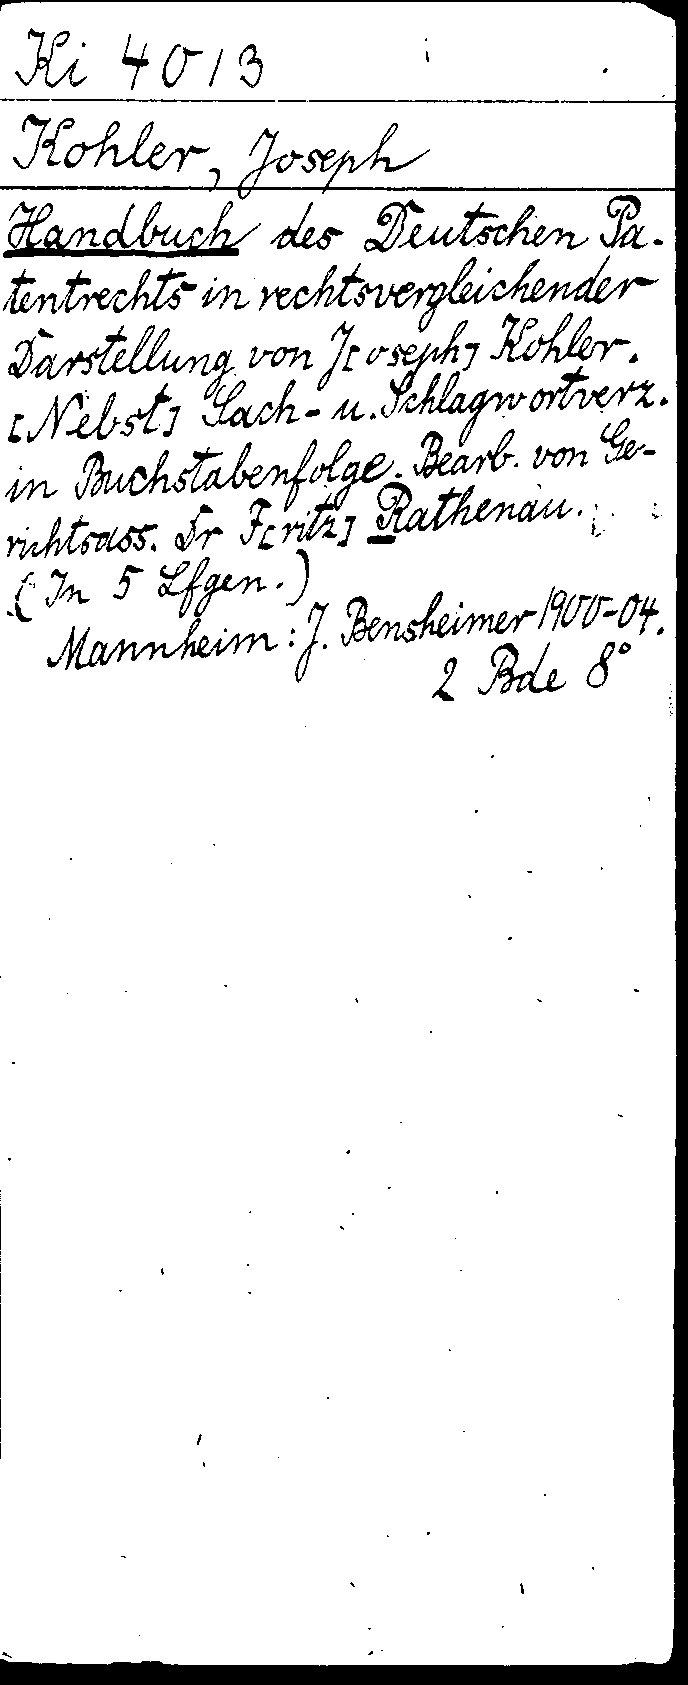 Ki 4013
Kohler, Joseph
Handbuch des Deutschen Pa-
tentrechts in rechtsvergleichender
Darstellung von J[oseph] Kohler.
[Nebst] Sach- u. Schlagwortverz.
in Buchstabenfolge. Bearb. von Ge-
richtsass. Dr F[ritz] Rathenau.
(In 5 Lfgen.)
Mannheim: J. Bensheimer 1900-04.
2 Bde 8°